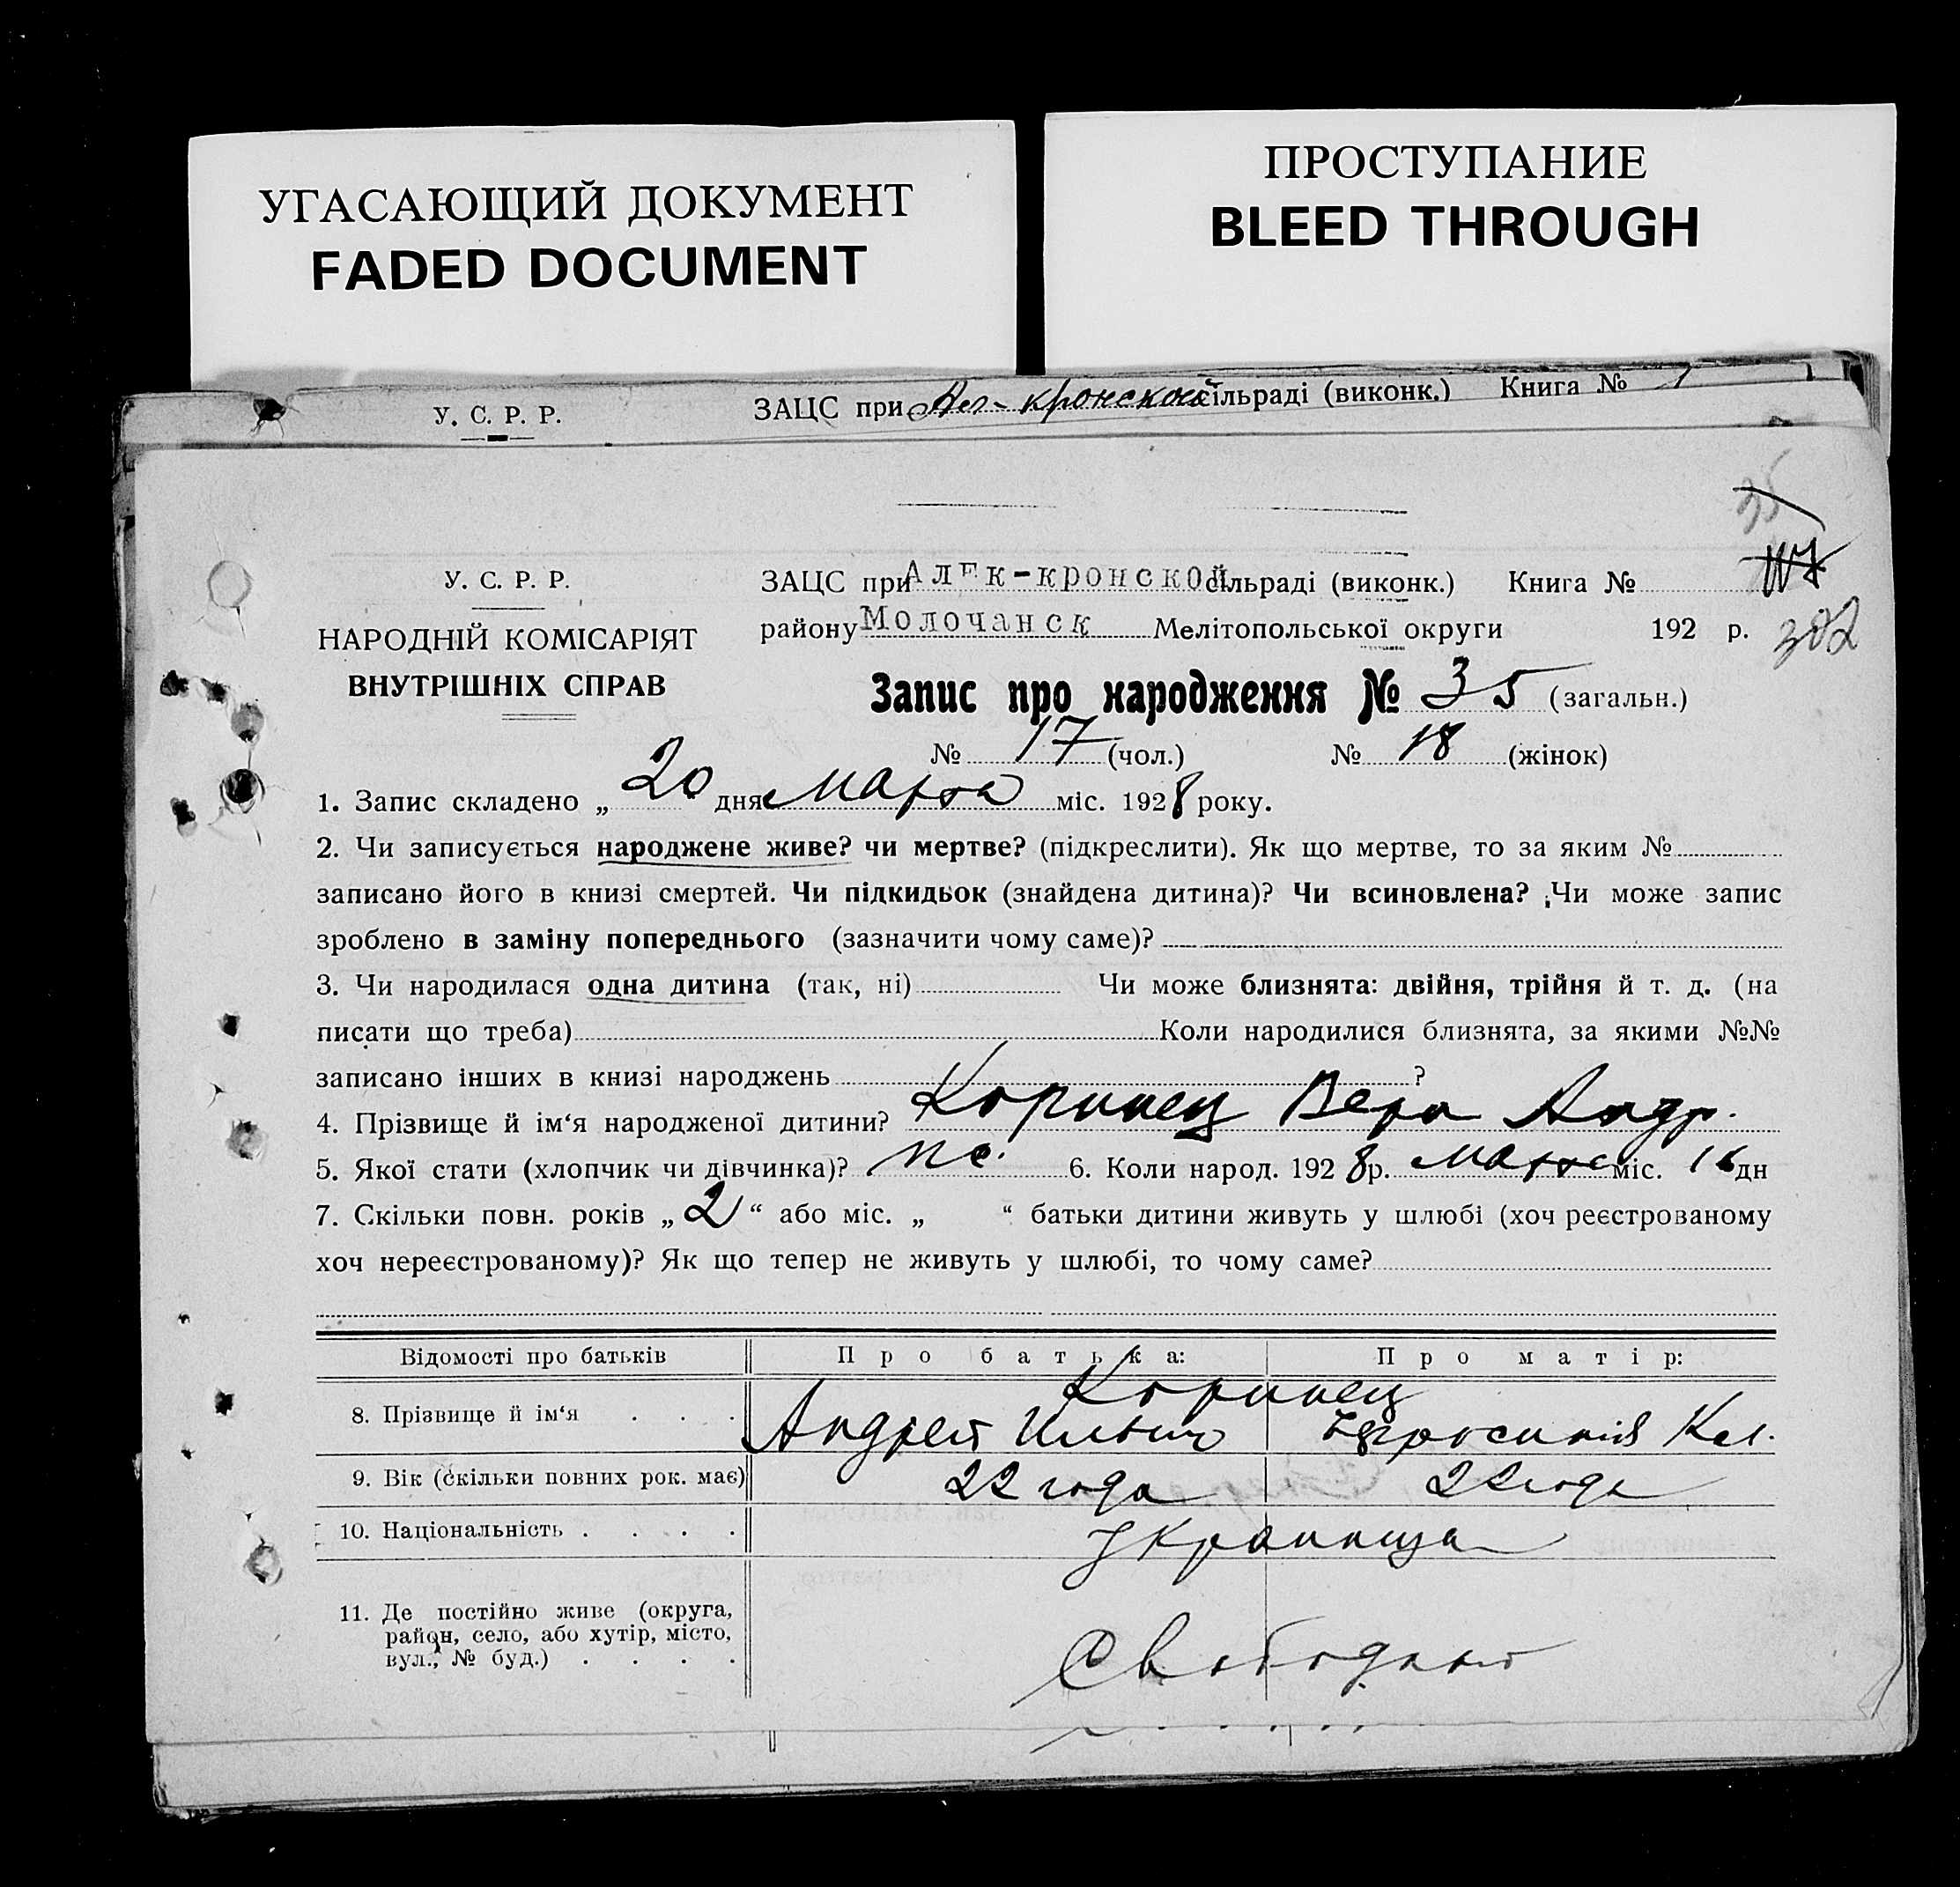 УГАСАЮЩИЙ ДОКУМЕНТ
FADED DOCUMENT
ПРОСТУПАНИЕ
BLEED THROUGH
У. С. Р. Р. ЗАЦС при Ал-кронской сільраді (виконк.) Книга №
35
У. С. Р. Р. ЗАЦС при Алек-кронской сільраді (виконк.) Книга №
НАРОДНІЙ КОМІСАРІЯТ району Молочанск Мелітопольської округи 192 р. 302
ВНУТРІШНІХ СПРАВ Запис про народження № 35 (загальн.)
№ 17 (чол.) № 18 (жінок)
1. Запис складено „ 20 дня марта міс. 1928 року.
2. Чи записується народжене живе? чи мертве? (підкреслити). Як що мертве, то за яким №
записано його в книзі смертей. Чи підкидьок (знайдена дитина)? Чи всиновлена? Чи може запис
зроблено в заміну попереднього (зазначити чому саме)?
3. Чи народилася одна дитина (так, ні) Чи може близнята: двійня, трійня й т. д. (на
писати що треба) Коли народилися близнята, за якими №№
записано інших в книзі народжень ?
4. Прізвище й ім‘я народженої дитини? Коринец Вера Андр.
5. Якої стати (хлопчик чи дівчинка)? же. 6. Коли народ. 1928 р. марта міс. 16 дн
7. Скільки повн. років „ 2 “ або міс. „ “ батьки дитини живуть у шлюбі (хоч реєстрованому
хоч нереєстрованому)? Як що тепер не живуть у шлюбі, то чому саме?
Відомості про батьків Про батька: Про матір:
Коринец
8. Прізвище й ім‘я . . . Андрей Ильич Ефросиния Кл.
9. Вік (скільки повних рок. має) 22 года 22 года
10. Національність . . . . Украинца
11. Де постійно живе (округа,
район, село, або хутір, місто,
вул., № буд.) . . . . Свободный